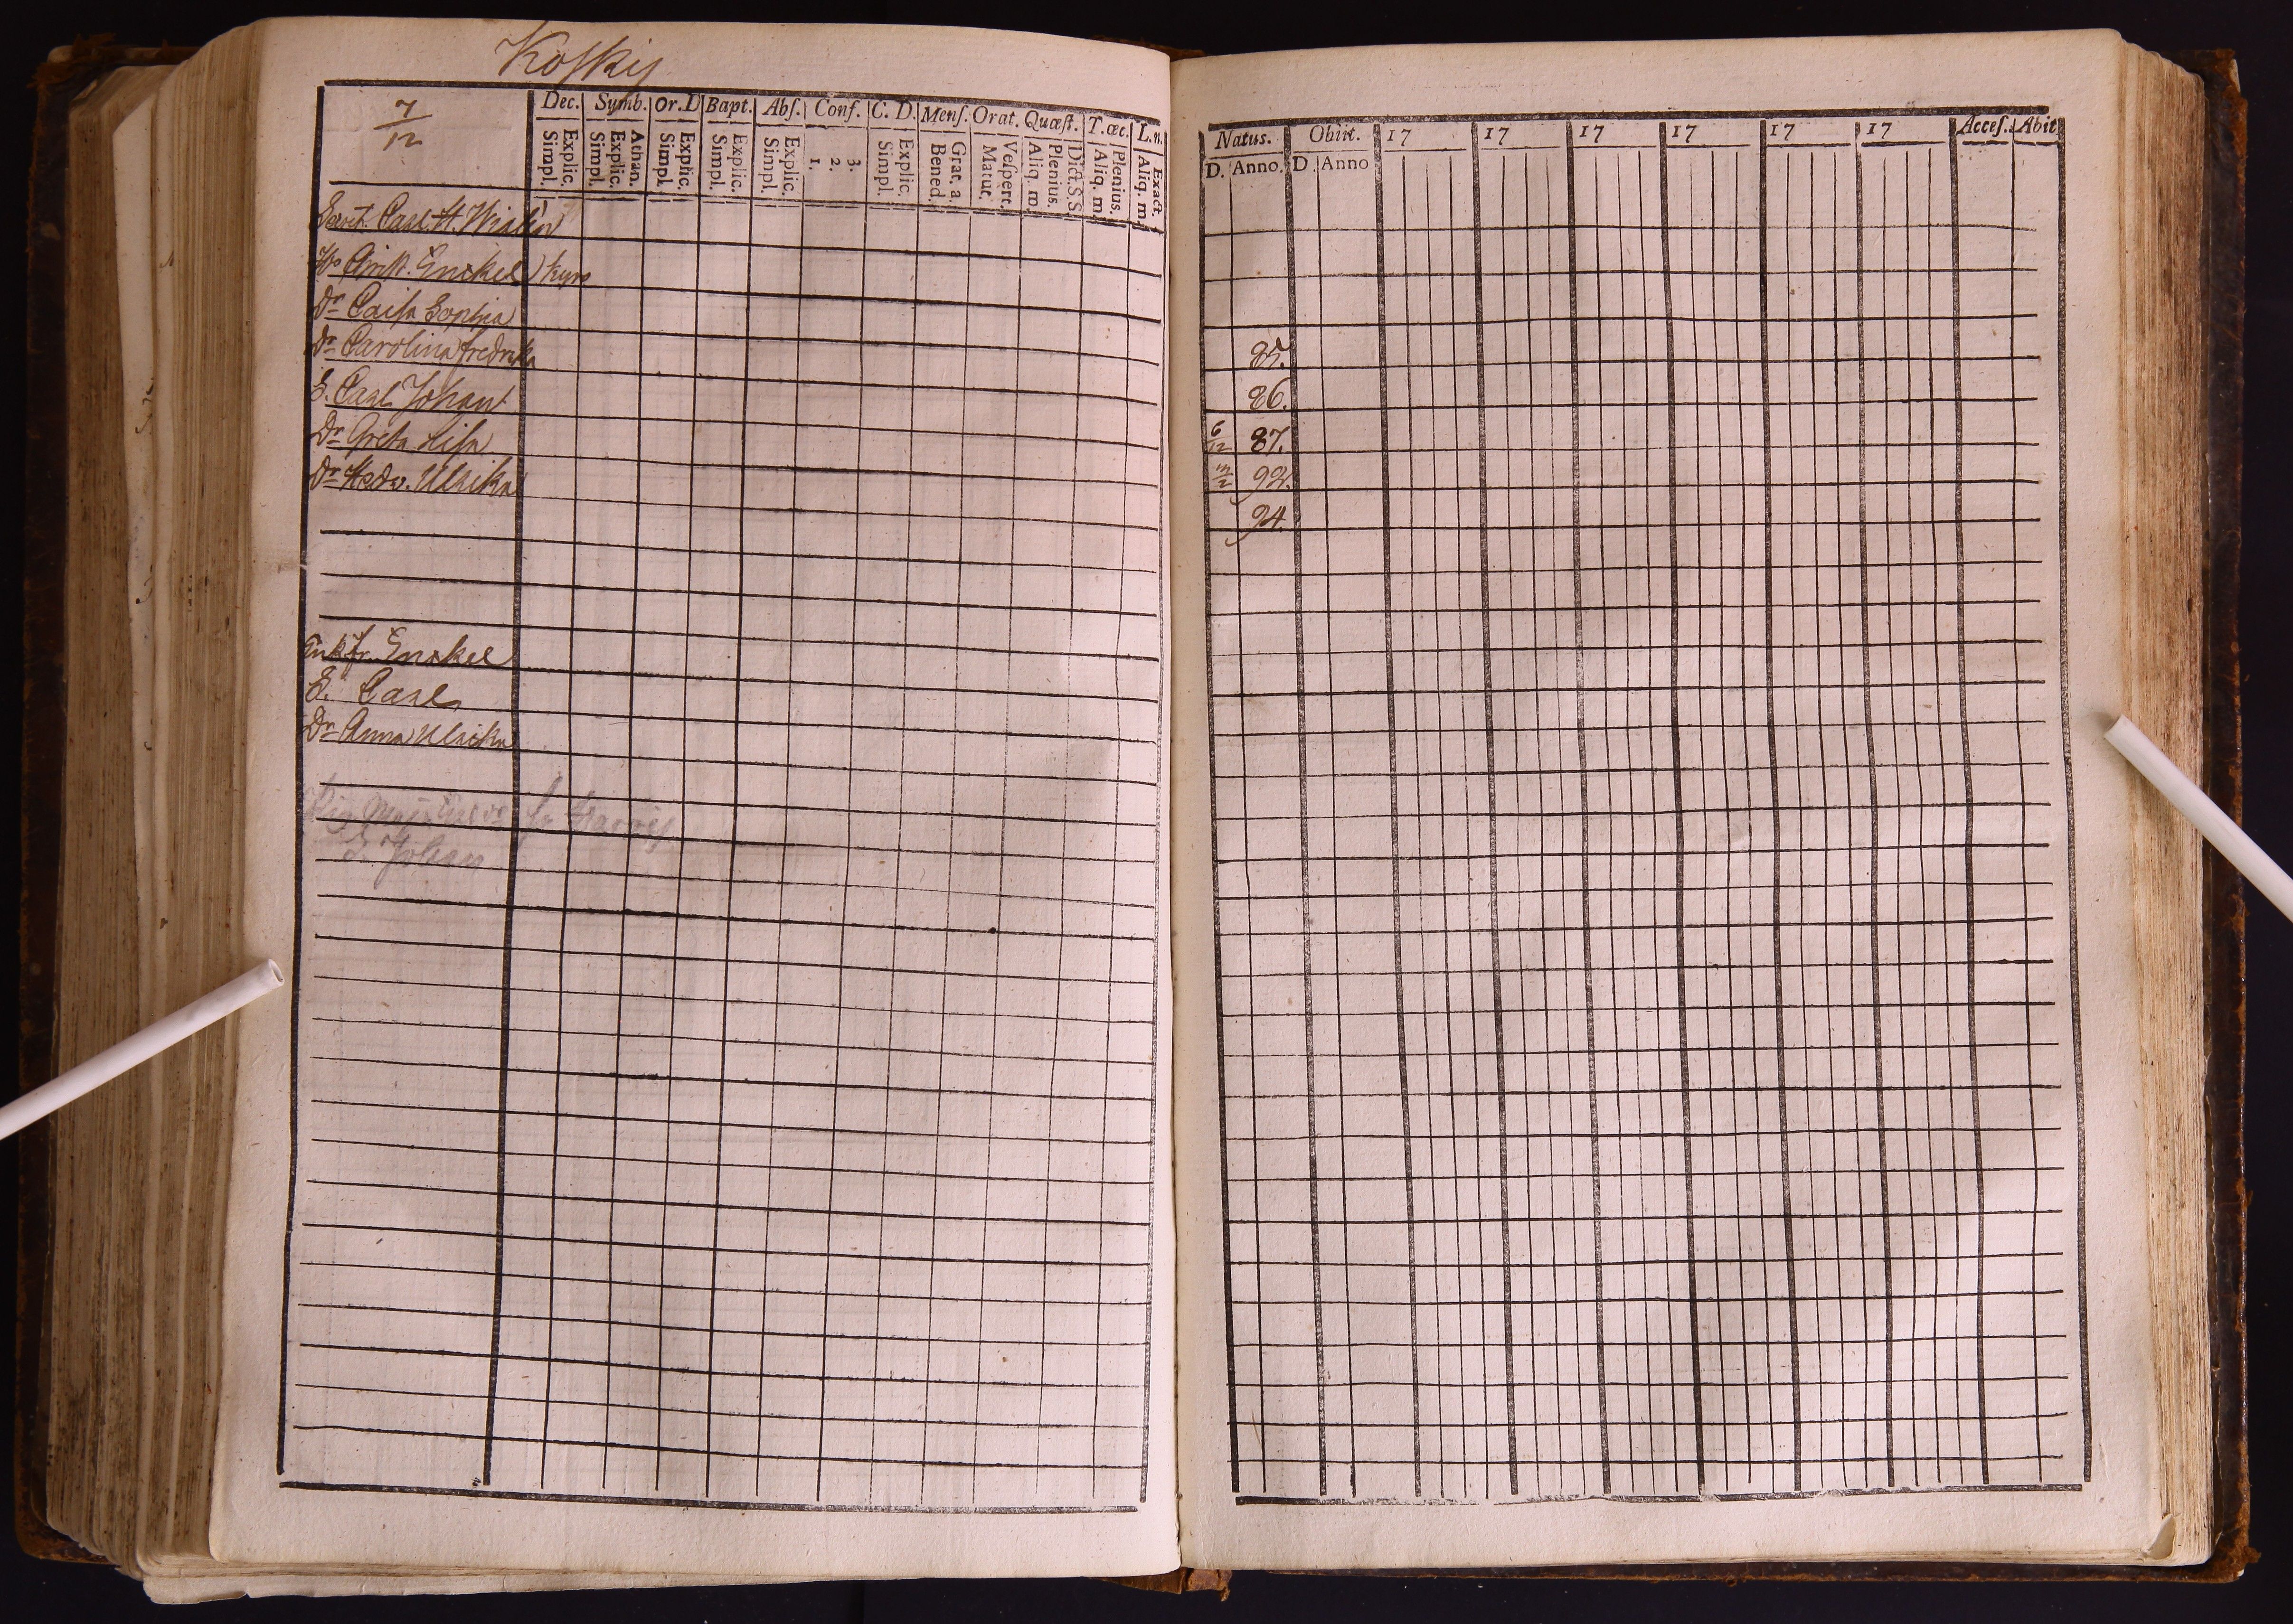 Koskis
7/12
Dec. Symb. Or. D Bapt. Abs. Conf. C. D. Mens. Orat. Quæst. T. œc. L. n.
Simpl. Explic. Simpl. Explic. Athan. Simpl. Explic. Simpl. Explic. Simpl. Explic. 1. 2. 3. Simpl. Explic. Bened. Grat. a. Matut. Vespert. Aliq. m. Plenius. Dict. S. S Aliq. m. Plenius. Aliq. m. Exact.
Carl H.
Enckel
Dr Caisa Sophia
Dr Carolina Fredrika
S. Carl Johan
Dr Greta Lisa
Dr Hedv. Ulrika
Enkfr. Enckel
S. Carl
Dr Anna Ulrika
S. Johan
Natus. Obiit. 17 17 17 17 17 17 Acces. Abit
D. Anno. D. Anno
85.
86.
6/12 87.
92.
94